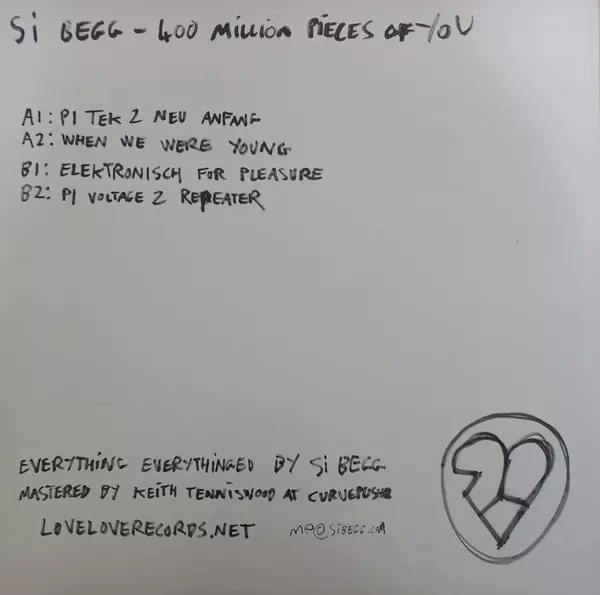 Si BEGG - 400 MILLION PIECES OF YOU
A1: PI TEK 2 NEU ANFANG
A2: WHEN WE WERE YOUNG
B1: ELEKTRONISCH FOR PLEASURE
B2: PI VOLTAGE 2 REPEATER
EVERYTHING EVERYTHINGED BY Si BEGG
MASTERED BY KEITH TENNISWOOD AT CURVEPUSHER
LOVELOVERECORDS.NET me@SiBEGG.com